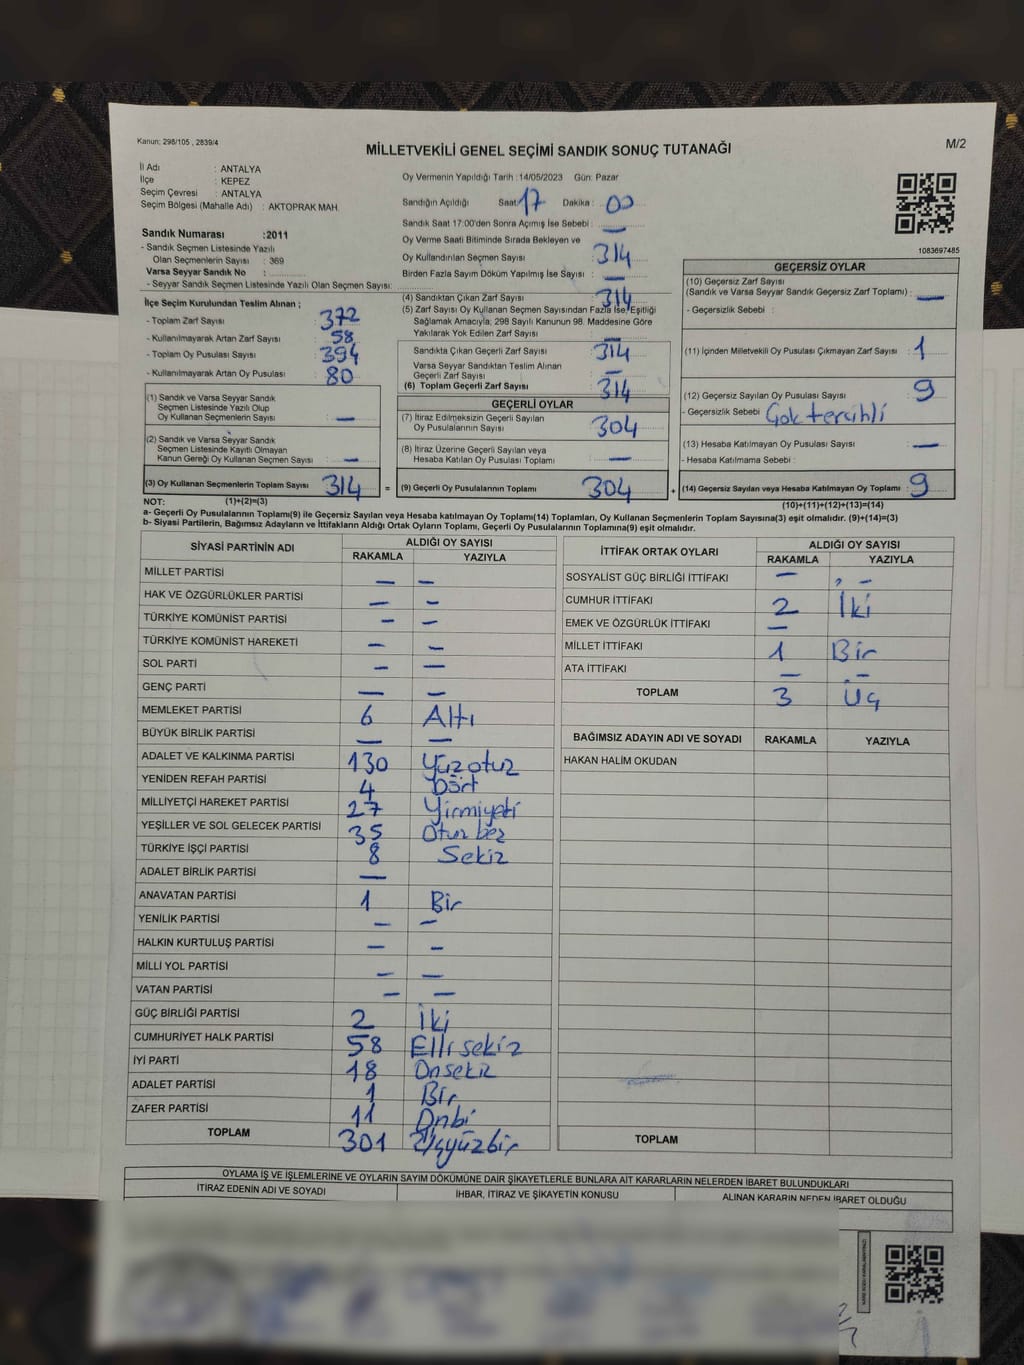 Kanun: 298/105 , 2839/4
MİLLETVEKİLİ GENEL SEÇİMİ SANDIK SONUÇ TUTANAĞI
M/2
İl Adı : ANTALYA
İlçe : KEPEZ
Seçim Çevresi : ANTALYA
Seçim Bölgesi (Mahalle Adı) : AKTOPRAK MAH.
Sandık Numarası :2011
- Sandık Seçmen Listesinde Yazılı
Olan Seçmenlerin Sayısı : 369
Varsa Seyyar Sandık No :
- Seyyar Sandık Seçmen Listesinde Yazılı Olan Seçmen Sayısı:
Oy Vermenin Yapıldığı Tarih :14/05/2023 Gün: Pazar
Sandığın Açıldığı Saat: 17 Dakika : 00
Sandık Saat 17:00'den Sonra Açımış İse Sebebi : —
Oy Verme Saati Bitiminde Sırada Bekleyen ve
Oy Kullandırılan Seçmen Sayısı : 314
Birden Fazla Sayım Döküm Yapılmış İse Sayısı : —
1083697485
İlçe Seçim Kurulundan Teslim Alınan ;
- Toplam Zarf Sayısı : 372
- Kullanılmayarak Artan Zarf Sayısı : 58
- Toplam Oy Pusulası Sayısı : 394
- Kullanılmayarak Artan Oy Pusulası : 80
(1) Sandık ve Varsa Seyyar Sandık
Seçmen Listesinde Yazılı Olup
Oy Kullanan Seçmenlerin Sayısı : —
(2) Sandık ve Varsa Seyyar Sandık
Seçmen Listesinde Kayıtlı Olmayan
Kanun Gereği Oy Kullanan Seçmen Sayısı : —
(3) Oy Kullanan Seçmenlerin Toplam Sayısı : 314 =
(4) Sandıktan Çıkan Zarf Sayısı : 314
(5) Zarf Sayısı Oy Kullanan Seçmen Sayısından Fazla İse, Eşitliği
Sağlamak Amacıyla, 298 Sayılı Kanunun 98. Maddesine Göre
Yakılarak Yok Edilen Zarf Sayısı : —
Sandıkta Çıkan Geçerli Zarf Sayısı : 314
Varsa Seyyar Sandıktan Teslim Alınan
Geçerli Zarf Sayısı : —
(6) Toplam Geçerli Zarf Sayısı : 314
GEÇERLİ OYLAR
(7) İtiraz Edilmeksizin Geçerli Sayılan
Oy Pusulalarının Sayısı : 304
(8) İtiraz Üzerine Geçerli Sayılan veya
Hesaba Katılan Oy Pusulası Toplamı : —
(9) Geçerli Oy Pusulalarının Toplamı : 304 +
GEÇERSİZ OYLAR
(10) Geçersiz Zarf Sayısı
(Sandık ve Varsa Seyyar Sandık Geçersiz Zarf Toplamı) : —
- Geçersizlik Sebebi :
(11) İçinden Milletvekili Oy Pusulası Çıkmayan Zarf Sayısı : 1
(12) Geçersiz Sayılan Oy Pusulası Sayısı : 9
- Geçersizlik Sebebi : Çok tercihli
(13) Hesaba Katılmayan Oy Pusulası Sayısı : —
- Hesaba Katılmama Sebebi :
(14) Geçersiz Sayılan veya Hesaba Katılmayan Oy Toplamı : 9
NOT: (1)+(2)=(3) (10)+(11)+(12)+(13)=(14)
a- Geçerli Oy Pusulalarının Toplamı(9) ile Geçersiz Sayılan veya Hesaba katılmayan Oy Toplamı(14) Toplamları, Oy Kullanan Seçmenlerin Toplam Sayısına(3) eşit olmalıdır. (9)+(14)=(3)
b- Siyasi Partilerin, Bağımsız Adayların ve İttifakların Aldığı Ortak Oyların Toplamı, Geçerli Oy Pusulalarının Toplamına(9) eşit olmalıdır.
SİYASİ PARTİNİN ADI ALDIĞI OY SAYISI
RAKAMLA YAZIYLA
MİLLET PARTİSİ — —
HAK VE ÖZGÜRLÜKLER PARTİSİ — —
TÜRKİYE KOMÜNİST PARTİSİ — —
TÜRKİYE KOMÜNİST HAREKETİ — —
SOL PARTİ — —
GENÇ PARTİ — —
MEMLEKET PARTİSİ 6 Altı
BÜYÜK BİRLİK PARTİSİ — —
ADALET VE KALKINMA PARTİSİ 130 Yüz otuz
YENİDEN REFAH PARTİSİ 4 Dört
MİLLİYETÇİ HAREKET PARTİSİ 27 Yirmiyedi
YEŞİLLER VE SOL GELECEK PARTİSİ 35 Otuz beş
TÜRKİYE İŞÇİ PARTİSİ 8 Sekiz
ADALET BİRLİK PARTİSİ —
ANAVATAN PARTİSİ 1 Bir
YENİLİK PARTİSİ — —
HALKIN KURTULUŞ PARTİSİ — —
MİLLİ YOL PARTİSİ — —
VATAN PARTİSİ — —
GÜÇ BİRLİĞİ PARTİSİ 2 İki
CUMHURİYET HALK PARTİSİ 58 Elli sekiz
İYİ PARTİ 18 Onsekiz
ADALET PARTİSİ 1 Bir
ZAFER PARTİSİ 11 Onbi
TOPLAM 301 Üçyüzbir
İTTİFAK ORTAK OYLARI ALDIĞI OY SAYISI
RAKAMLA YAZIYLA
SOSYALİST GÜÇ BİRLİĞİ İTTİFAKI — —
CUMHUR İTTİFAKI 2 İki
EMEK VE ÖZGÜRLÜK İTTİFAKI —
MİLLET İTTİFAKI 1 Bir
ATA İTTİFAKI — —
TOPLAM 3 Üç
BAĞIMSIZ ADAYIN ADI VE SOYADI RAKAMLA YAZIYLA
HAKAN HALİM OKUDAN
TOPLAM
OYLAMA İŞ VE İŞLEMLERİNE VE OYLARIN SAYIM DÖKÜMÜNE DAİR ŞİKAYETLERLE BUNLARA AİT KARARLARIN NELERDEN İBARET BULUNDUKLARI
İTİRAZ EDENİN ADI VE SOYADI İHBAR, İTİRAZ VE ŞİKAYETİN KONUSU ALINAN KARARIN NEDEN İBARET OLDUĞU